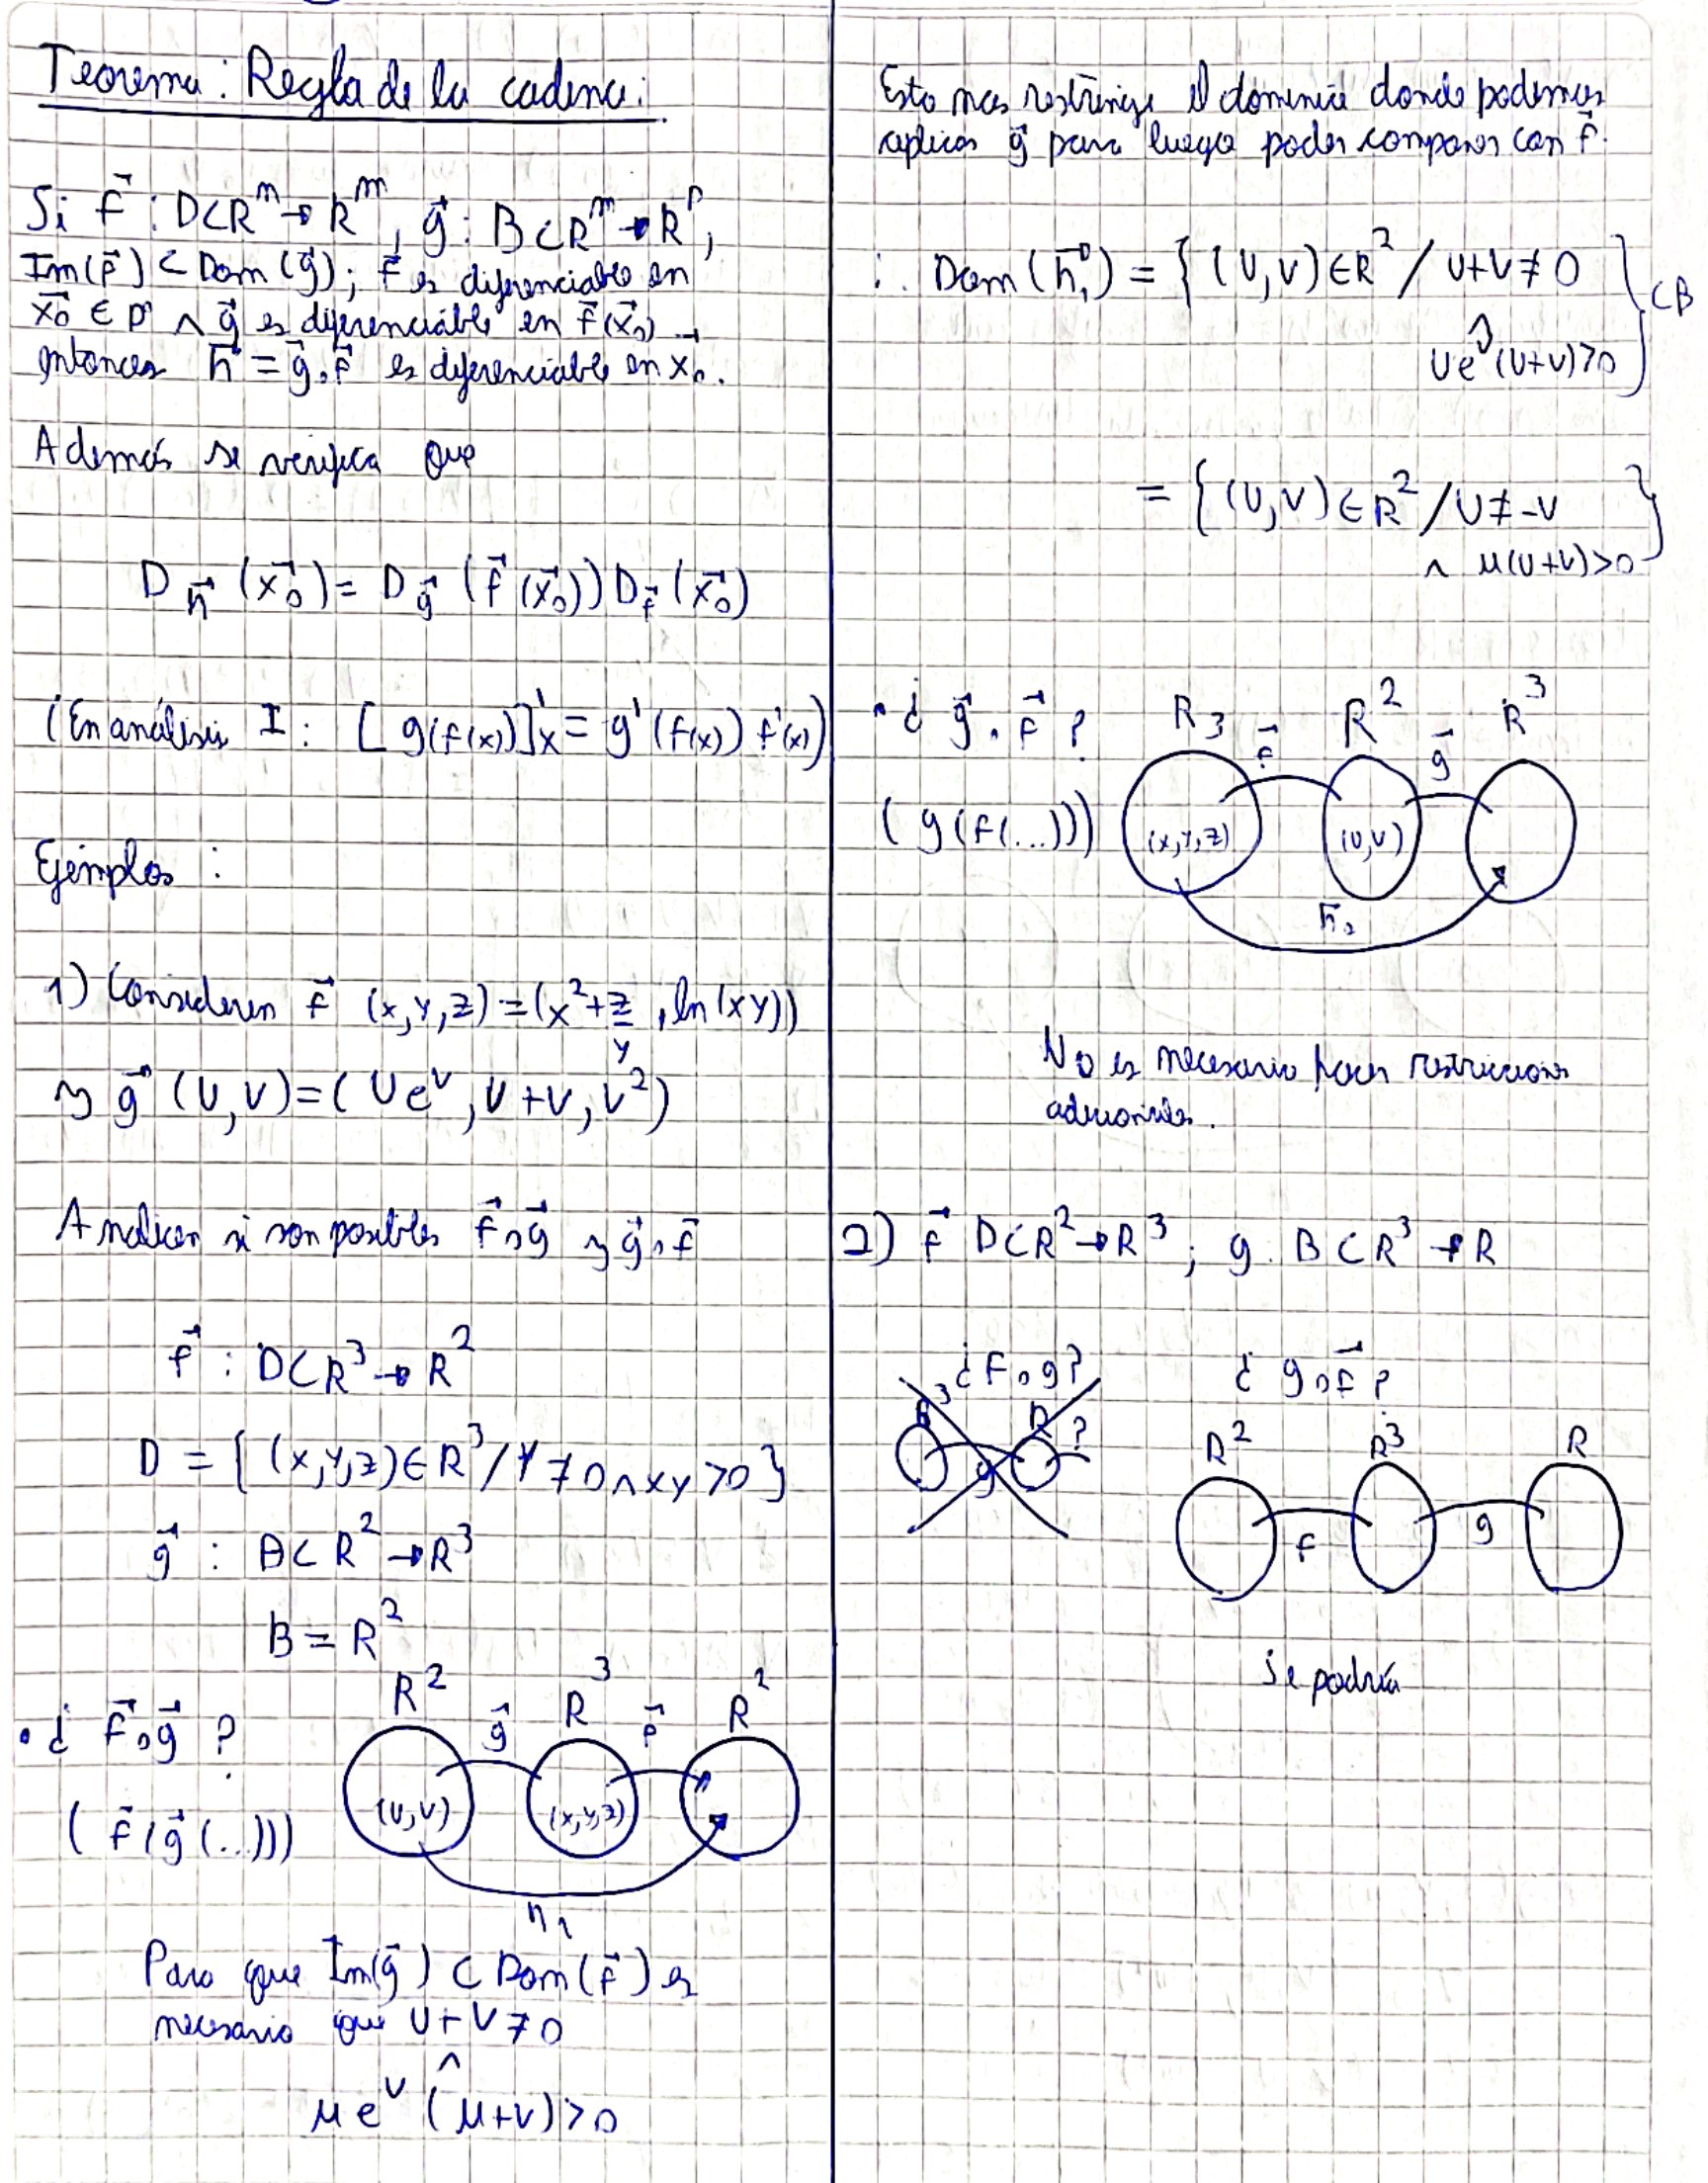 Teorema: Regla de la cadena:
Si f⃗: D⊂Rⁿ→Rᵐ, g⃗: B⊂Rᵐ→Rᵖ,
Im(f⃗) ⊂ Dom(g⃗); f⃗ es diferenciable en
x⃗₀ ∈ D ∧ g⃗ es diferenciable en f⃗(x⃗₀)
entonces h⃗ = g⃗∘f⃗ es diferenciable en x⃗₀.
Además se verifica que
D h⃗ (x⃗₀) = D g⃗ (f⃗(x⃗₀)) D f⃗ (x⃗₀)
(En análisis I: [g(f(x))]'x = g'(f(x)) f'(x))
Ejemplos:
1) Consideren f⃗ (x,y,z) = (x² + z/y, ln(xy))
y g⃗ (u,v) = (ueᵛ, u+v, v²)
Analicen si son posibles f⃗∘g⃗ y g⃗∘f⃗
f⃗: D⊂R³→R²
D = {(x,y,z)∈R³ / y≠0 ∧ xy>0}
g⃗: B⊂R²→R³
B = R²
• ¿ f⃗∘g⃗ ?
R² g⃗ R³ f⃗ R²
(f⃗(g⃗(...)))
(u,v) (x,y,z)
h₁
Para que Im(g⃗) ⊂ Dom(f⃗) es
necesario que u+v≠0
∧
μeᵛ(μ+v)>0
Esto nos restringe el dominio donde podemos
aplicar g⃗ para luego poder componer con f⃗.
∴ Dom(h⃗₁) = {(u,v)∈R² / u+v≠0
∧
ueᵛ(u+v)>0} ⊂B
= {(u,v)∈R² / u≠-v
∧ μ(u+v)>0}
• ¿ g⃗∘f⃗ ?
R3 f⃗ R² g⃗ R³
(g(f(...)))
(x,y,z) (u,v)
h⃗₂
No es necesario hacer restricciones
adicionales.
2) f⃗ D⊂R²→R³; g: B⊂R³→R
¿f∘g?
R³ R ?
g
¿ g∘f⃗ ?
R² R³ R
f g
Se podría